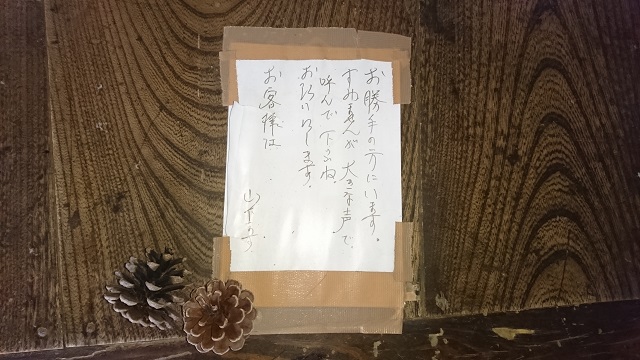 お勝手の方にいます。
すみませんが 大きな声で、
呼んで下さいね。
お願いします。
お客様は